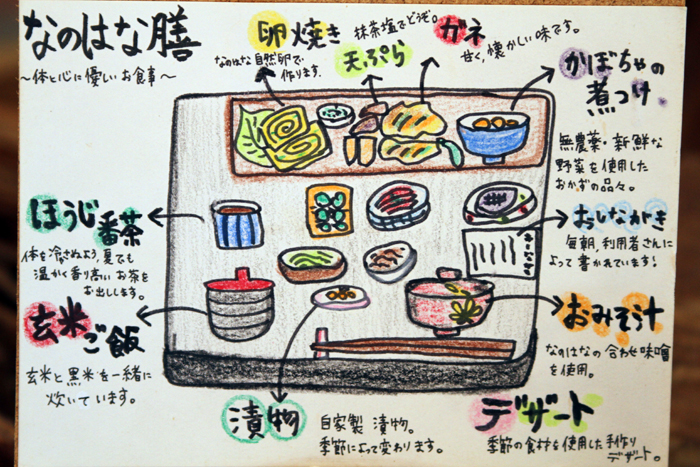 なのはな膳
～体と心に優しいお食事～
卵焼き
なのはな自然卵で
作ります.
抹茶塩でどうぞ。
天ぷら
ガネ
甘く、懐かしい味です。
かぼちゃの
煮つけ
無農薬・新鮮な
野菜を使用した
おかずの品々。
ほうじ
番茶
体を冷さぬよう、夏でも
温かく香り高いお茶を
お出しします。
おしながき
毎朝、利用者さんに
よって書かれています!
玄米
ご飯
玄米と黒米を一緒に
炊いています。
おみそ汁
なのはなの合わせ味噌
を使用。
漬物
自家製漬物。
季節によって変わります。
デザート
季節の食材を使用した手作り
デザート。